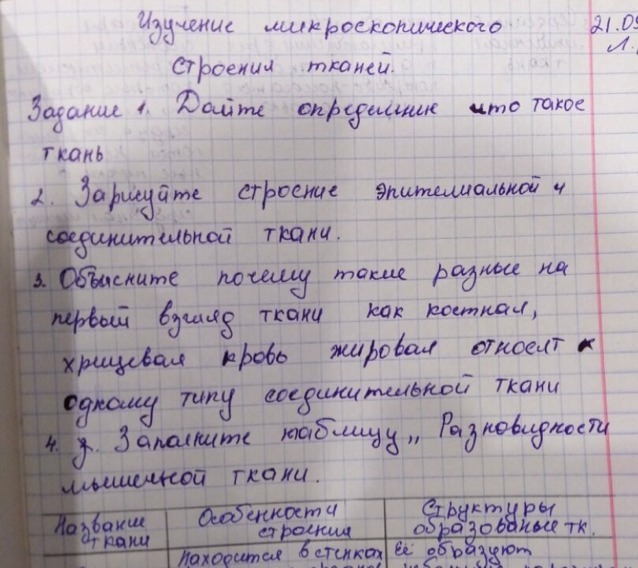 Изучение микроскопического
21.09
Л.
строения тканей.
Задание 1. Дайте определение что такое
ткань
2. Зарисуйте строение эпителиальной и
соединительной ткани.
3. Объясните почему такие разные на
первый взгляд ткани как костная,
хрящевая кровь жировая относят к
одному типу соединительной ткани
4. Заполните таблицу „Разновидности
мышечной ткани.
Название ткани
Особенности строения
Структуры образованые тк.
Находится в стенках
Её образуют